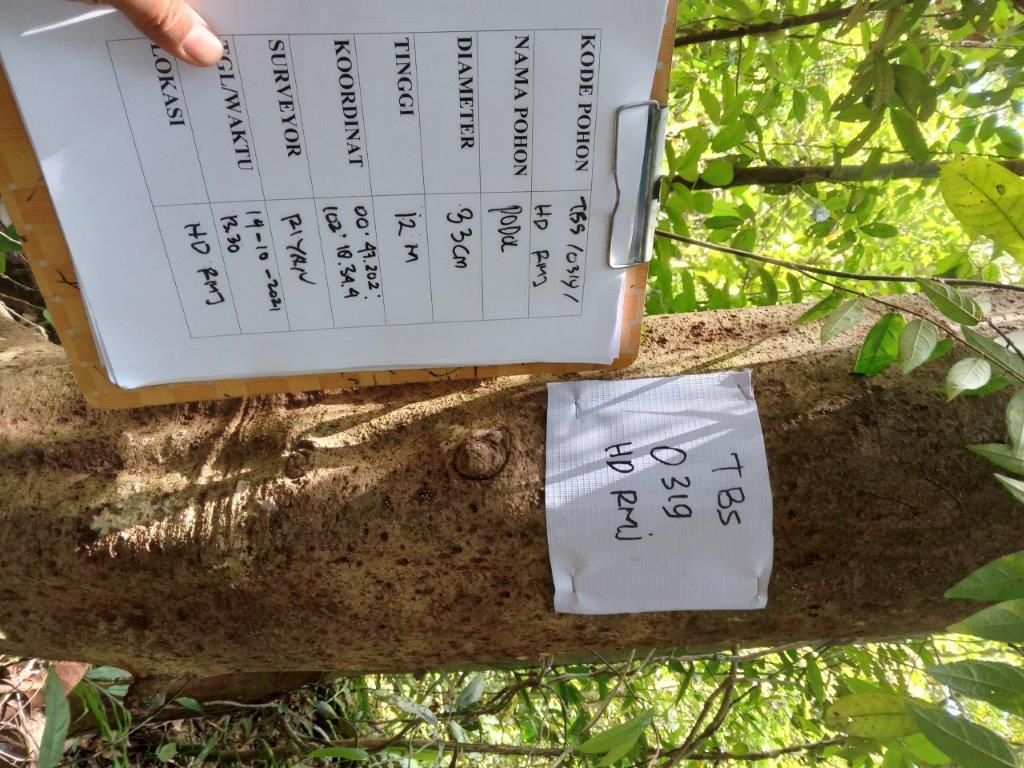 KODE POHON TBS /0314/
HD RMJ
NAMA POHON PODA
DIAMETER 33cm
TINGGI 12 m
KOORDINAT 00°.47.202'.
102°.18.34.4
SURVEYOR PIYAN
TGL/WAKTU 19-10-2021
13.30
LOKASI HD RMJ
TBS
0319
HD RMJ